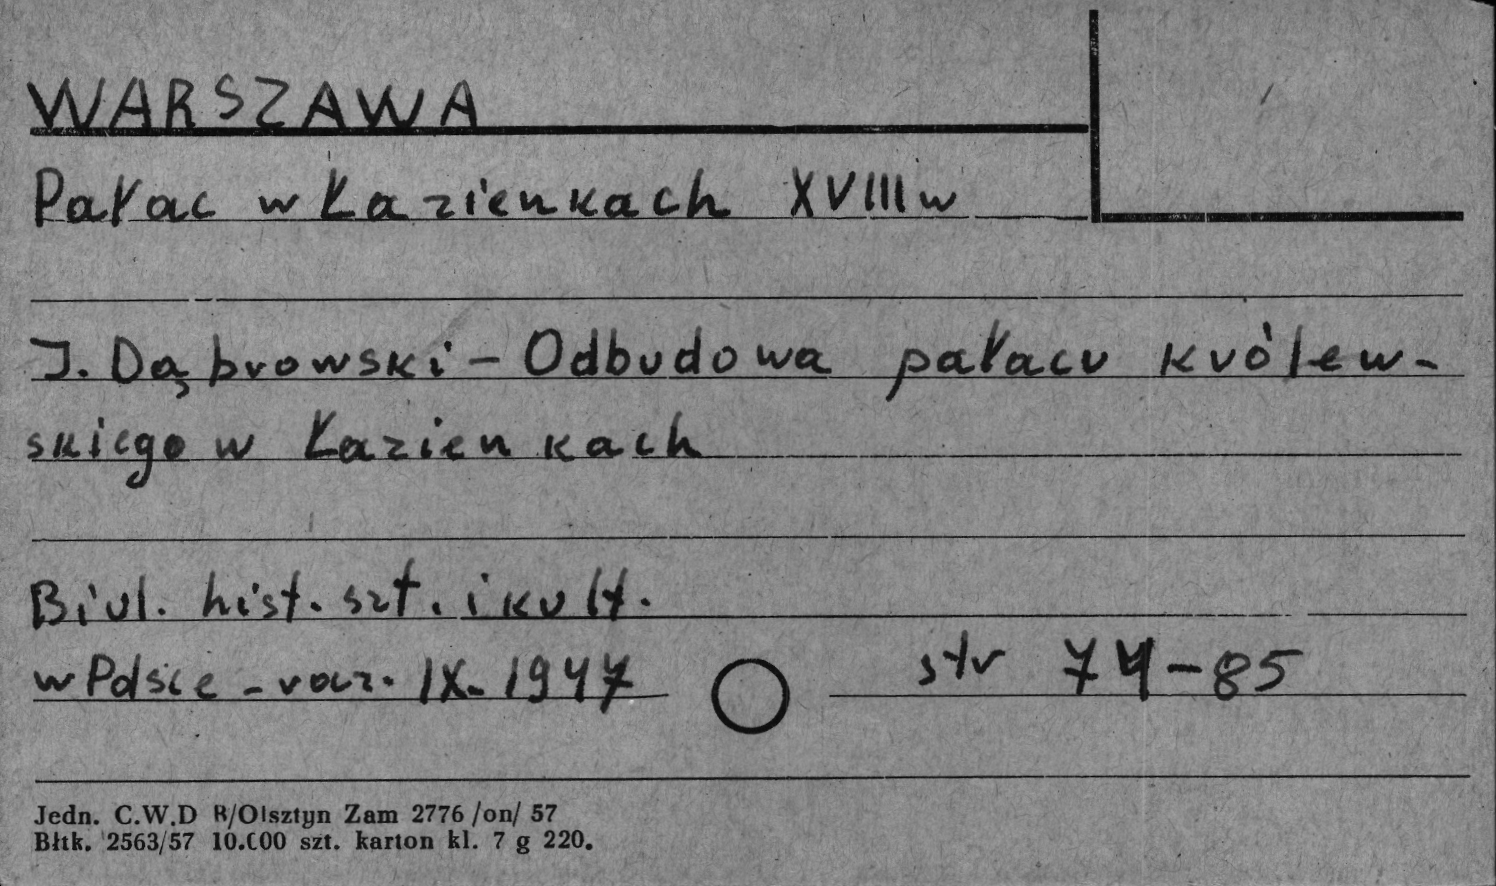 WARSZAWA
Pałac w Łazienkach XVIII w
J. Dąbrowski – Odbudowa pałacu królew-
skiego w Łazienkach
Biul. hist. szt. i kult.
w Polsce – rocz. IX. 1947 str 74–85
Jedn. C.W.D R/Olsztyn Zam 2776 /on/ 57
Błtk. 2563/57 10.000 szt. karton kl. 7 g 220.